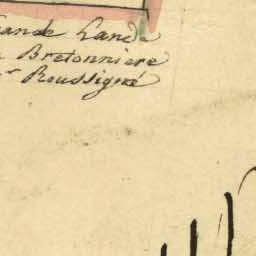 ande Lande
Bretonniere
Roussigné